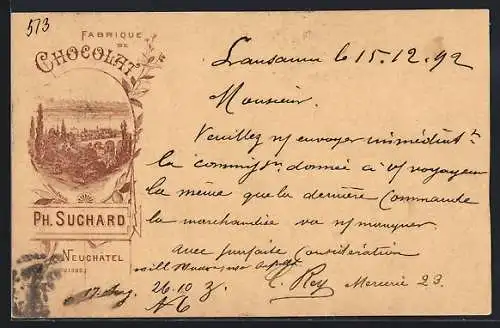 573
FABRIQUE
DE
CHOCOLAT
PH. SUCHARD
NEUCHÂTEL
(SUISSE)
Lausanne le 15.12.92
Monsieur.
Veuillez n/ envoyer immédiatt
la commission donnée à v/ voyageur
la même que la dernière commande
la marchandise va n/ manquer.
avec parfaite considération
C. Rey Mercerie 23.
26.10